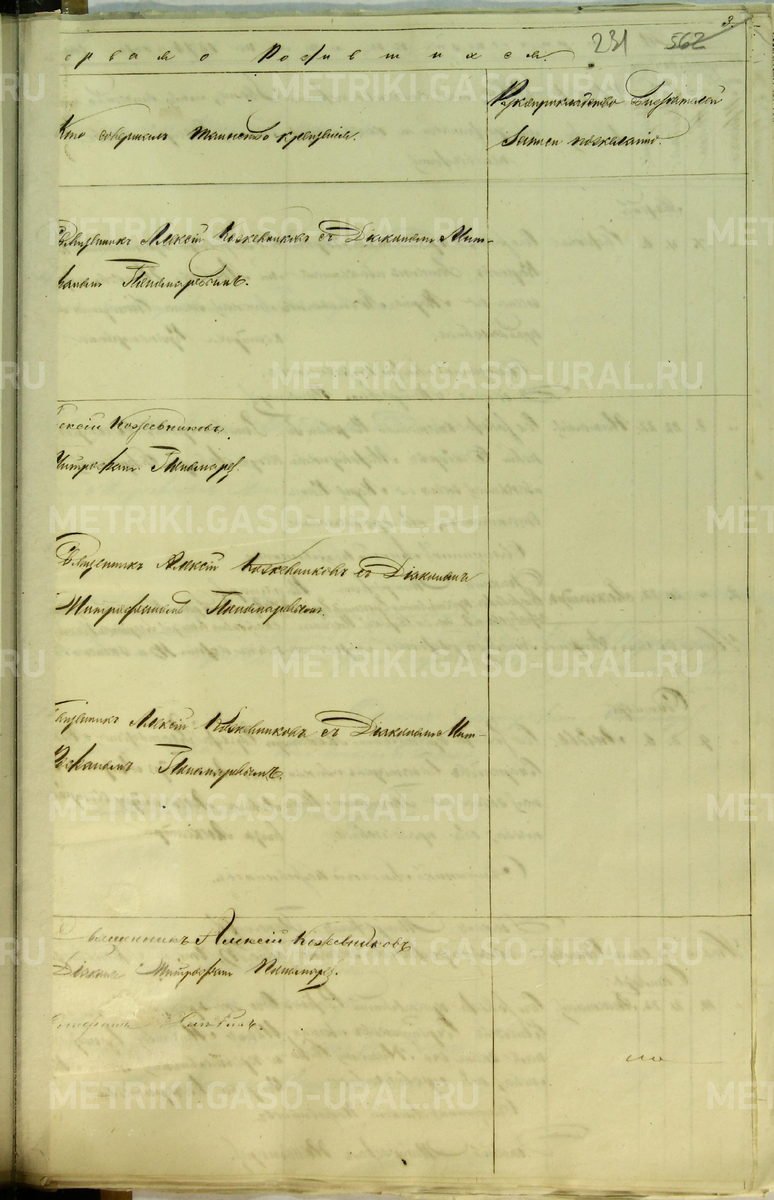 3.
231 562
ервамо Родившихся.
Кто совершилъ таинство крещенія.
Рукоприкладство свидѣтелей
записи пожеланію.
Священникъ Алексій Кожевниковъ съ Діакономъ Мит-
Пономаревымъ.
ексій Кожевниковъ
Митрофанъ Пономарев
Священникъ Алексій Кожевниковъ съ Діакономъ
Митрофаномъ Пономаревымъ.
Священникъ Алексій Кожевниковъ съ Діакономъ Мит-
рофаномъ Пономаревымъ.
Священникъ Алексій Кожевниковъ
Діаконъ Митрофанъ Пономарев.
METRIKI.GASO-URAL.RU